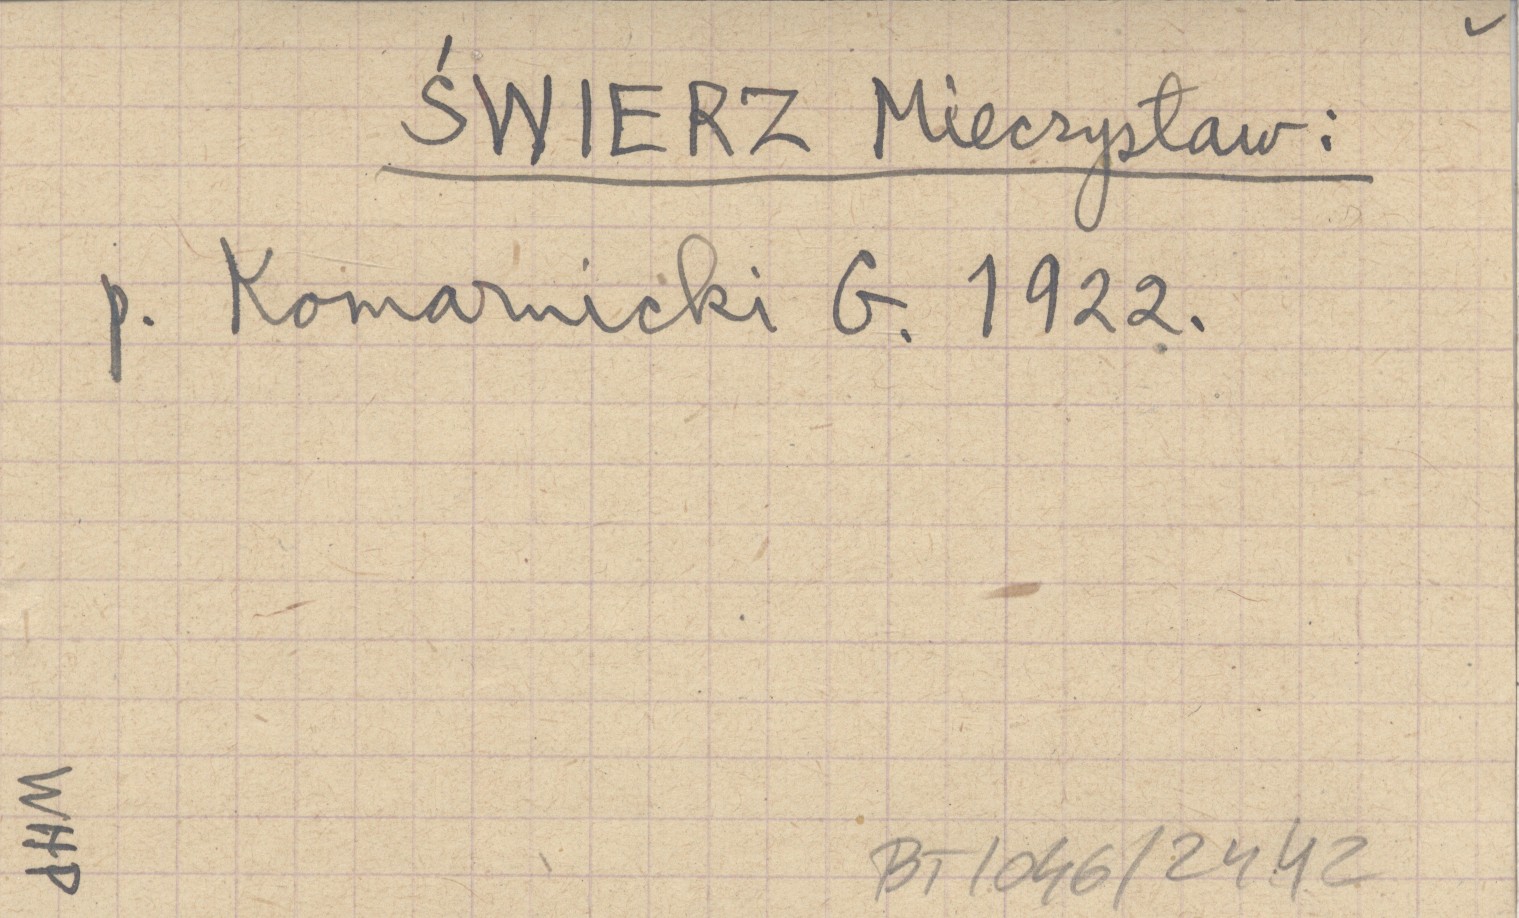 ŚWIERZ Mieczysław:
p. Komarnicki G. 1922.
WHP
BT/046/2442